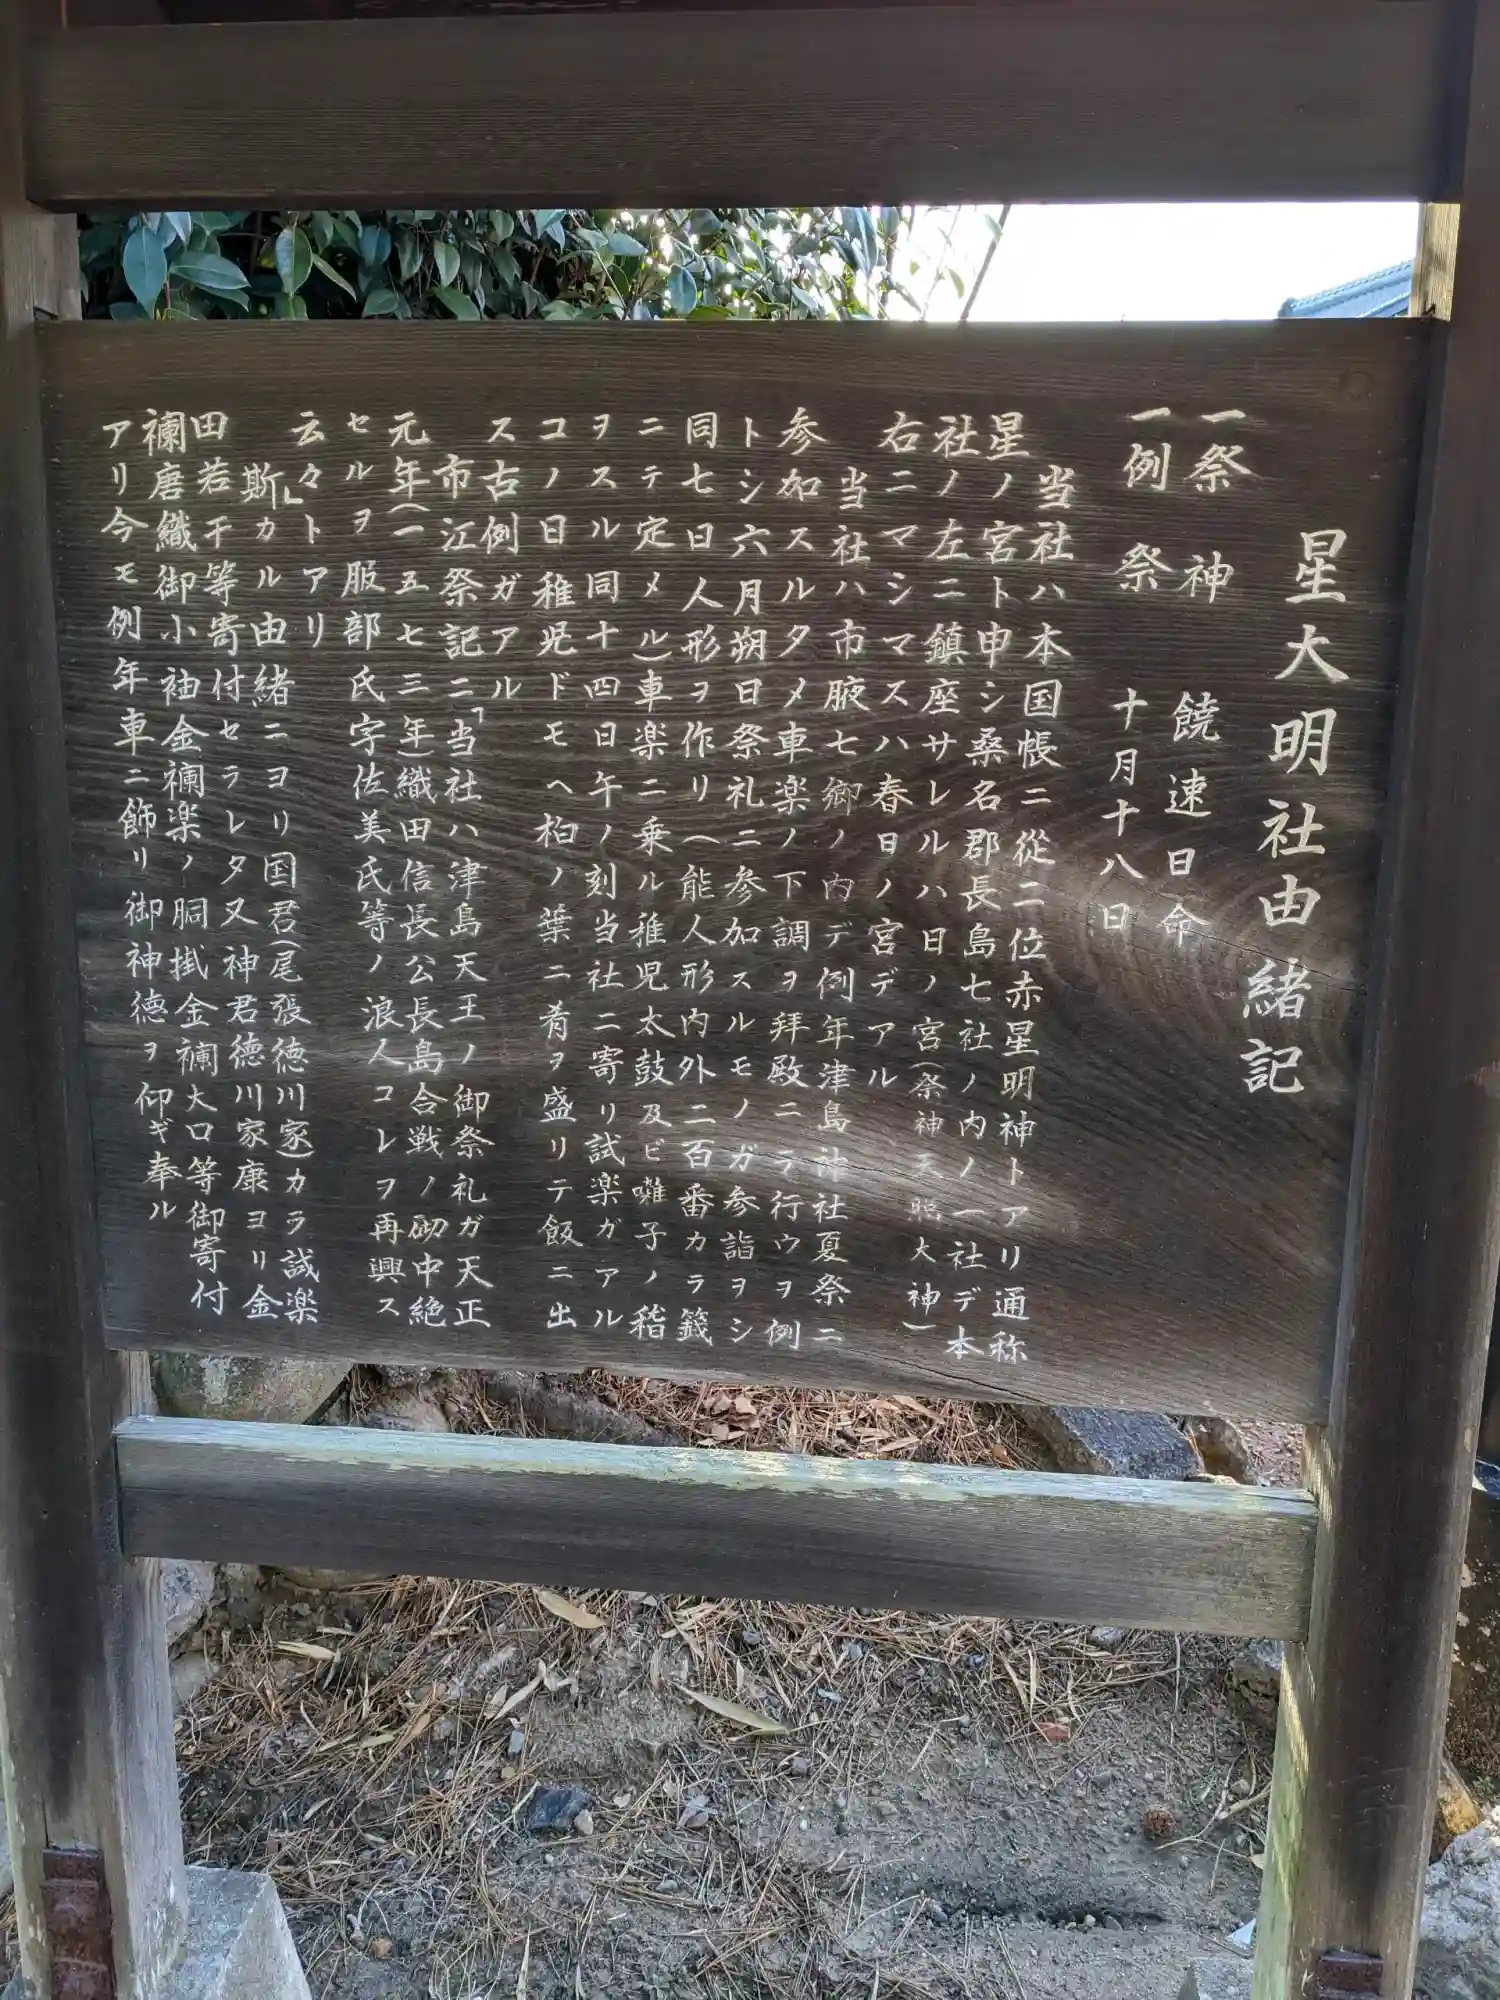 星大明社由緒記
一祭神 饒速日命
一例祭 十月十八日
当社ハ本国帳ニ従二位赤星明神トアリ通称
星ノ宮ト申シ桑名郡長島七社ノ内ノ一社デ本
社ノ左ニ鎮座サレルハ日ノ宮(祭神天照大神)
右ニマシマスハ春日ノ宮デアル
当社ハ市腋七郷ノ内デ例年津島神社夏祭ニ
参加スルタメ車楽ノ下調ヲ拝殿ニテ行ウヲ例
トシ六月朔日祭礼ニ参加スルモノガ参詣ヲシ
同七日人形ヲ作リ(能人形内外二百番カラ籤
ニテ定メル)車楽ニ乗ル稚児太鼓及ビ囃子ノ稽
ヲスル同十四日午ノ刻当社ニ寄リ試楽ガアル
コノ日稚児ドモヘ柏ノ葉ニ肴ヲ盛リテ飯ニ出
ス古例ガアル
市江祭記ニ「当社ハ津島天王ノ御祭礼ガ天正
元年(一五七三年)織田信長公長島合戦ノ砌中絶
セルヲ服部氏宇佐美氏等ノ浪人コレヲ再興ス
云々」トアリ
斯カル由緒ニヨリ国君(尾張徳川家)カラ試楽
田若干等寄付セラレタ又神君徳川家康ヨリ金
襴唐織御小袖金襴楽ノ胴掛金襴大口等御寄付
アリ今モ例年車ニ飾リ御神徳ヲ仰ギ奉ル